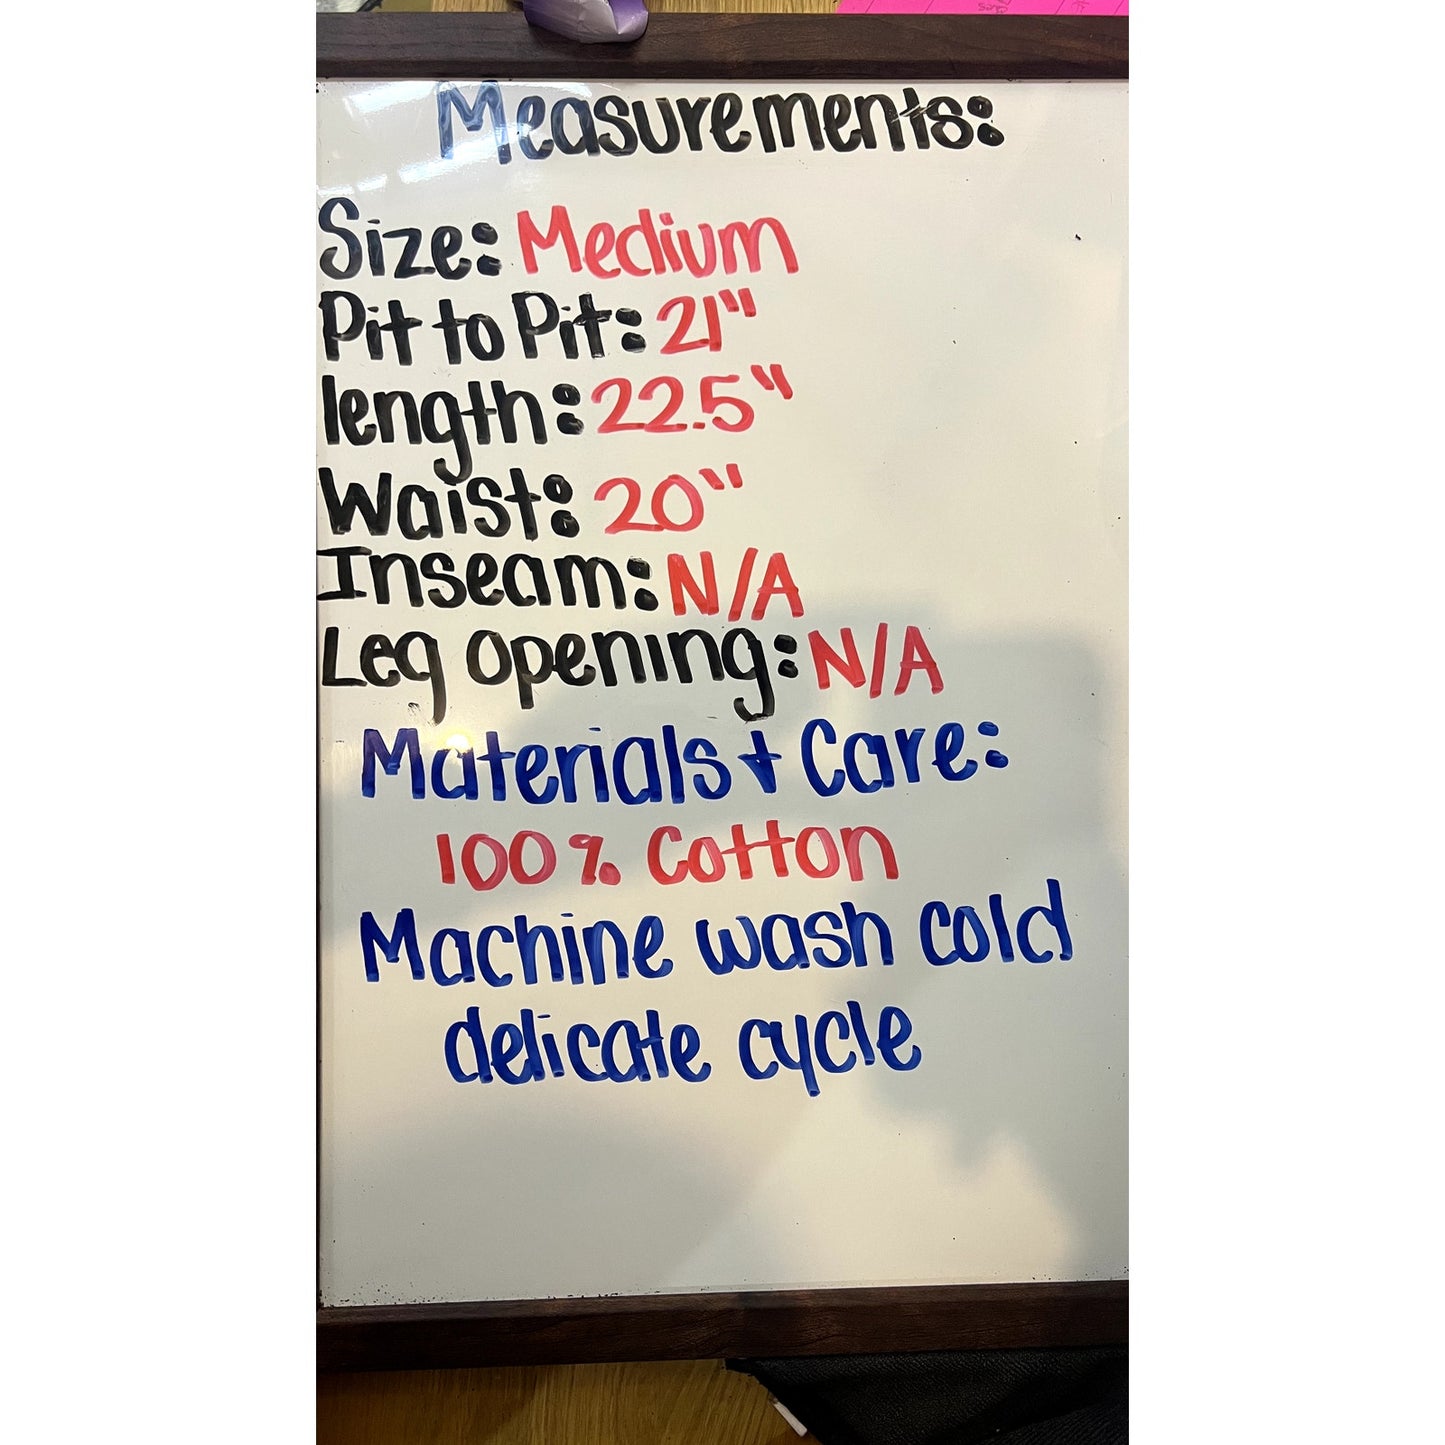 Measurements:
Size: Medium
Pit to Pit: 21"
length: 22.5"
Waist: 20"
Inseam: N/A
Leg opening: N/A
Materials + Care:
100% Cotton
Machine wash cold
delicate cycle